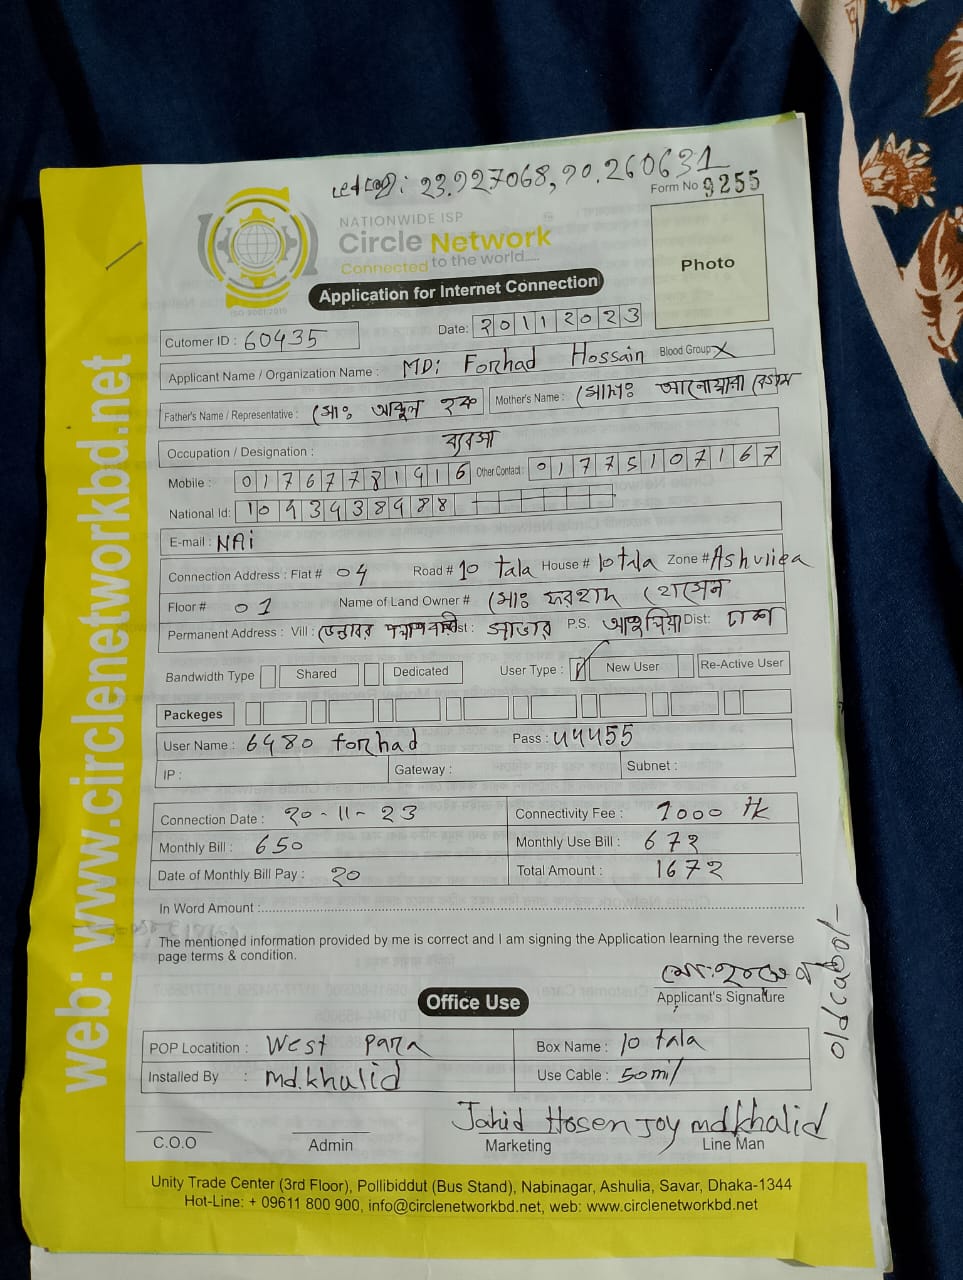 23.927068, 90.260631
Form No 9255
NATIONWIDE ISP
Circle Network
Connected to the world.....
ISO 9001:2015
Photo
Application for Internet Connection
Cutomer ID : 60435
Date: 20112023
Applicant Name / Organization Name : MD: Forhad Hossain Blood Group X
Father's Name / Representative : মোঃ আব্দুল হক Mother's Name : মোসাঃ আনোয়ারা বেগম
Occupation / Designation : ব্যবসা
Mobile : 01767781916 Other Contact: 01775107167
National Id: 1043438988
E-mail : NAi
Connection Address : Flat # 04 Road # 10 tala House # 10 tala Zone # Ashuliea
Floor # 01 Name of Land Owner # মোঃ ফরহাদ হোসেন
Permanent Address : Vill : st: সাভার P.S. আশুলিয়া Dist: ঢাকা
Bandwidth Type Shared Dedicated User Type : New User Re-Active User
Packeges
User Name : 6480 forhad Pass : 44455
IP : Gateway : Subnet :
Connection Date : 20-11-23 Connectivity Fee : 1000 Tk
Monthly Bill : 650 Monthly Use Bill : 672
Date of Monthly Bill Pay : 20 Total Amount : 1672
In Word Amount :
The mentioned information provided by me is correct and I am signing the Application learning the reverse
page terms & condition.
Applicant's Signature
Office Use
POP Locatition : West para Box Name : 10 tala
Installed By : Md.khalid Use Cable : 50 mi/
Jahid Hosen Joy md.khalid
C.O.O Admin Marketing Line Man
Unity Trade Center (3rd Floor), Pollibiddut (Bus Stand), Nabinagar, Ashulia, Savar, Dhaka-1344
Hot-Line: + 09611 800 900, info@circlenetworkbd.net, web: www.circlenetworkbd.net
web: www.circlenetworkbd.net
old cabol-